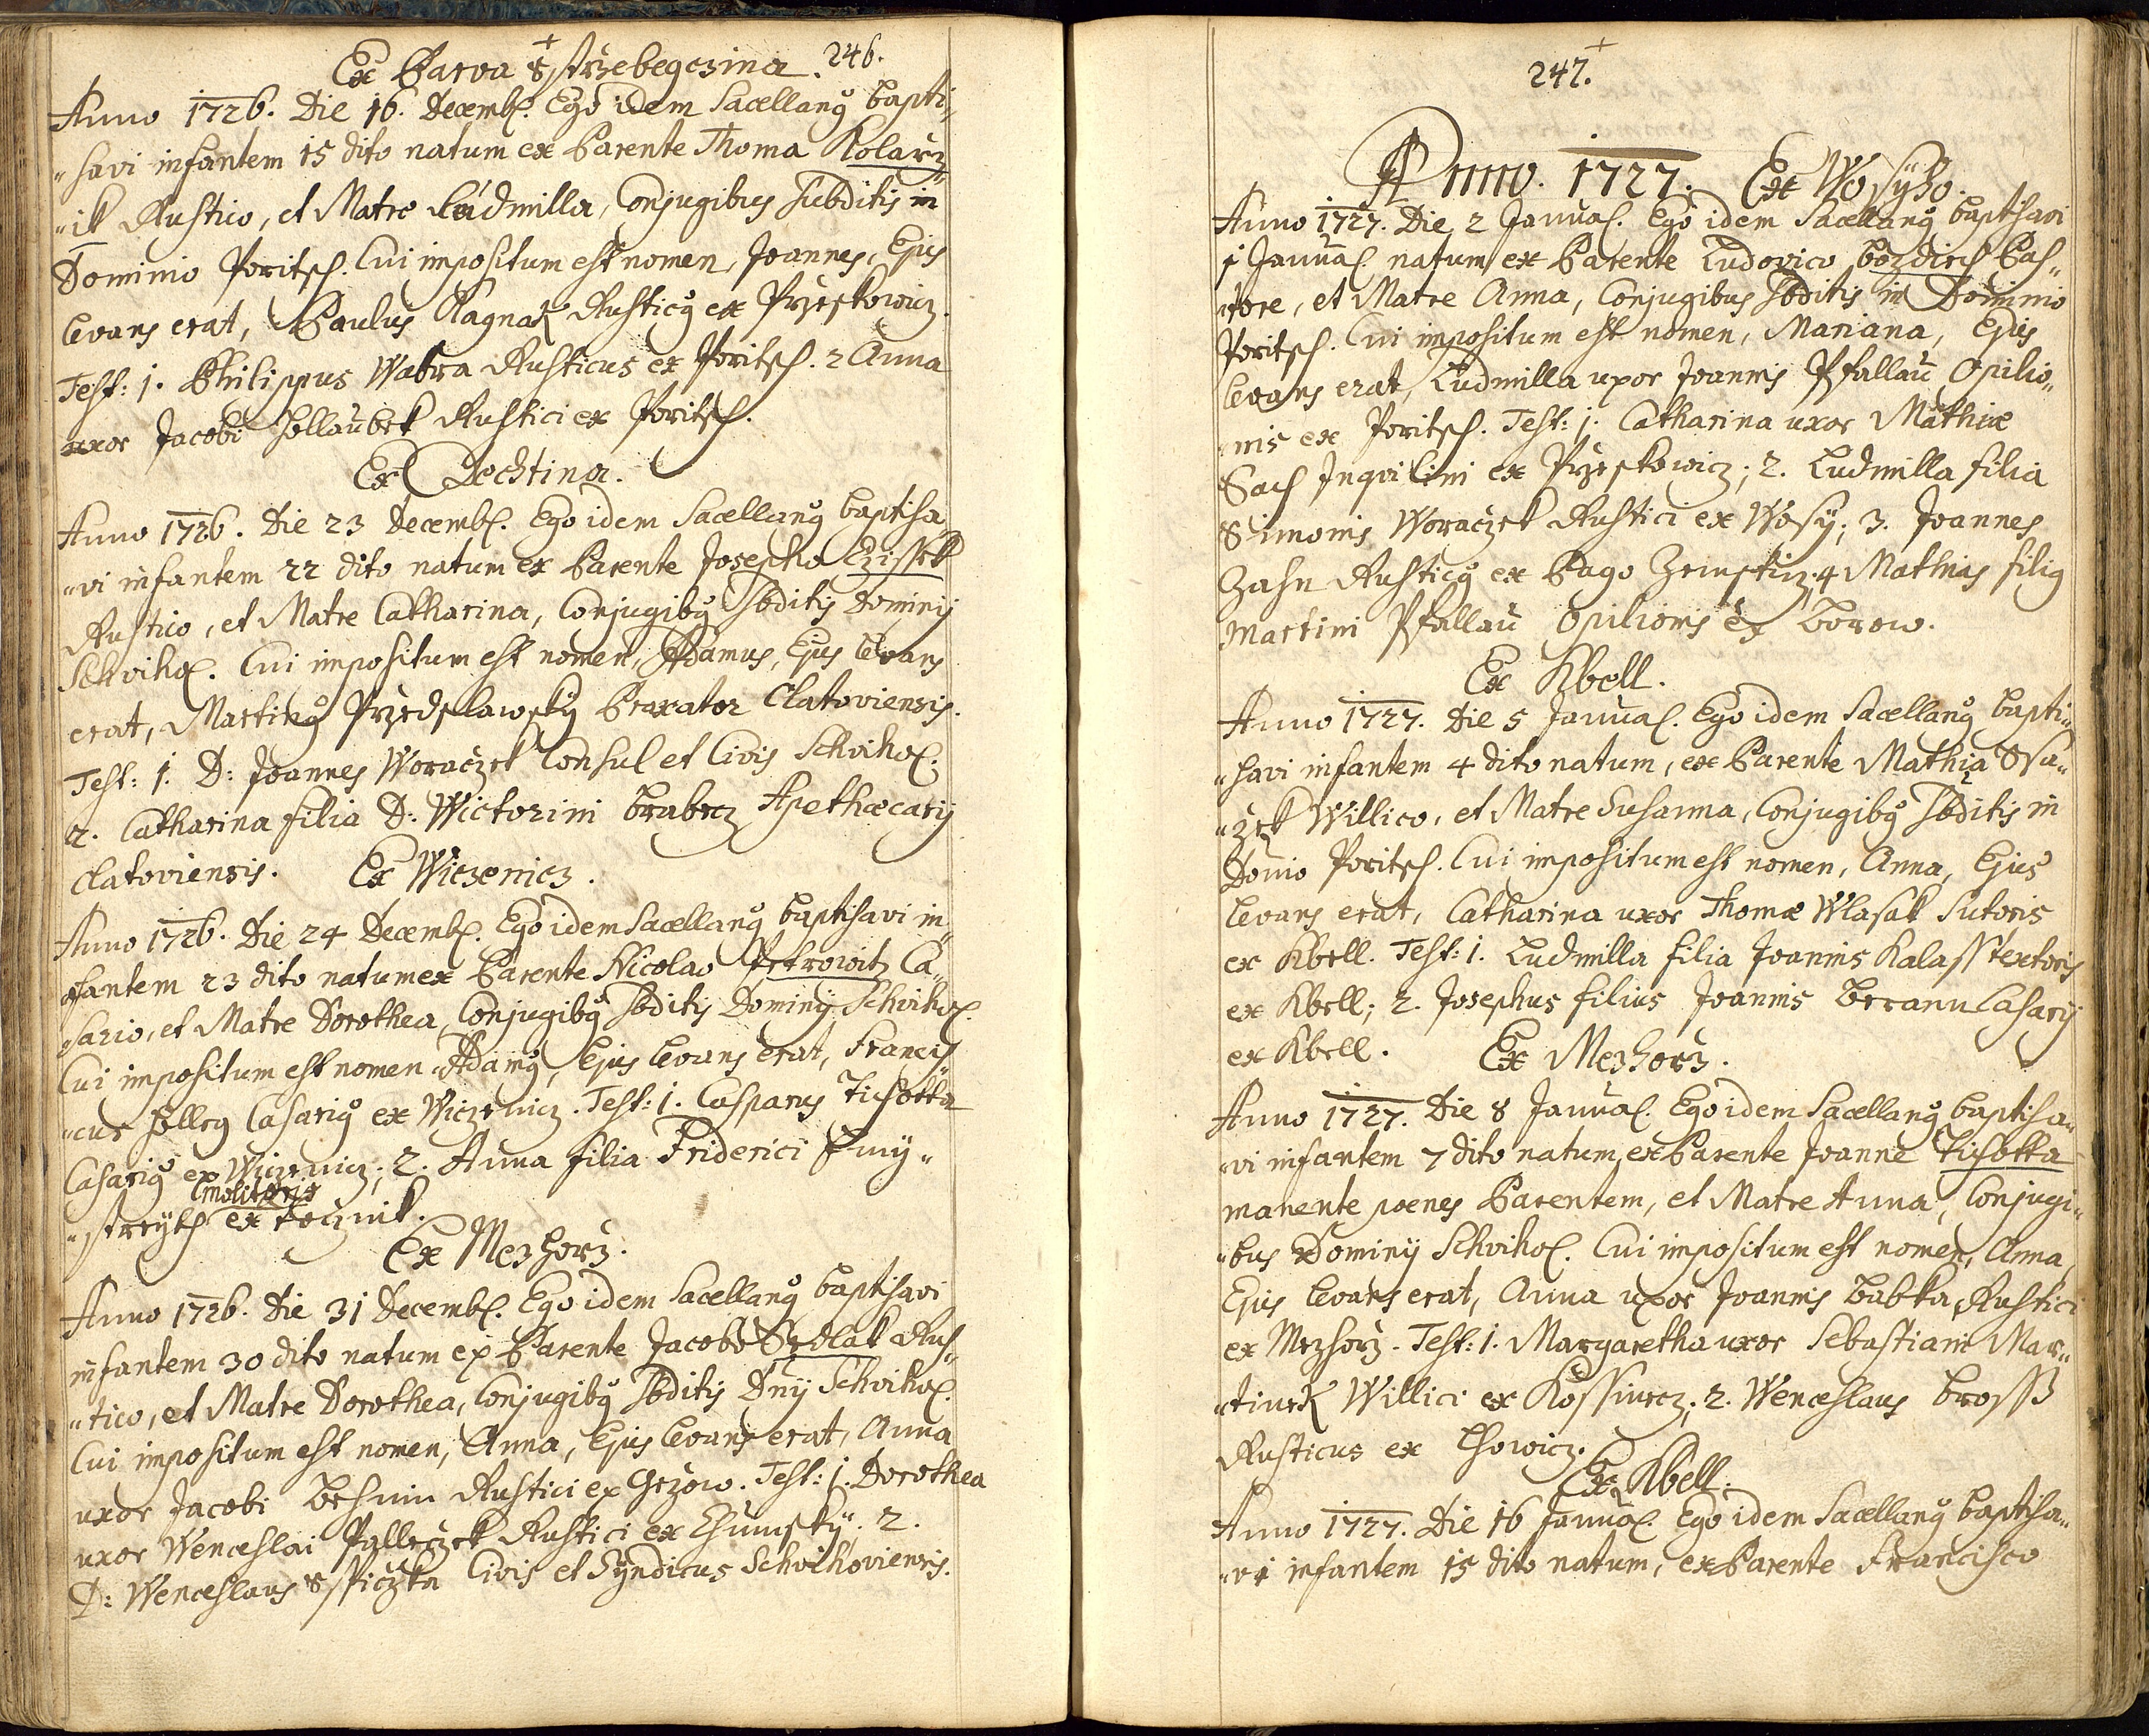 246.
Ex Parva Sstrzebegczina.
Anno 1726. Die 16. Decemb. Ego idem Sacellanus bapti„
„savi infantem 15 dito natum ex Parente Thoma Kolarz„
„ik Rustico, et Matre Ludmilla, Conjugibus Subditis in
Dominio Poritsch. Cui impositum est nomen, Joannes, Ejus
levans erat, Paulus Ragnak Rusticus ex Przeskowicz.
Test: 1. Philippus Wabra Rusticus ex Poritsch. 2 Anna
uxor Jacobi Hollaubek Rustici ex Poritsch.
Ex Dechtina.
Anno 1726. Die 23 Decemb. Ego idem Sacellanus baptisa
„vi infantem 22 dito natum ex Parente Josepho Czissek
Rustico, et Matre Catharina, Conjugibus Sbditis Dominij
Schvihov. Cui impositum est nomen, Adamus, Ejus levans
erat, Martinus Przedslawsky Braxator Clatoviensis.
Test: 1. D: Joannes Woraczek Consul et Civis Schvihov.
2. Catharina filia D: Wictorini Brabecz Apethæcarij
Clatoviensis. Ex Wiczenicz.
Anno 1726. Die 24 Decemb. Ego idem Sacellanus baptisavi in„
„fantem 23 dito natum ex Parente Nicolao Petrowitz Ca„
sario, et Matre Dorothea, Conjugibus Sbditis Dominij Schvihov.
Cui impositum est nomen Adamus, Ejus levans erat, Francis„
„cus Holley Casarius ex Wiczenicz. Test: 1. Casparus Tichotka
Casarius ex Wiczenicz; 2. Anna filia Friderici
molitoris
ex
Ex Mezhorz.
Anno 1726. Die 31 Decemb. Ego idem Sacellanus baptisavi
infantem 30 dito natum ex Parente Jacobo Sedlak Rus„
„tico, et Matre Dorothea, Conjugibus Sbditis Dnij Schvihov.
Cui impositum est nomen, Anna, Ejus levans erat, Anna
uxor Jacobi Rustici ex Grzow. Test: 1. Dorothea
uxor Wenceslai Palleczek Rustici ex Chumsky. 2.
D: Wenceslaus Sspiczka Civis et Syndicus Schvihoviensis.
247.
Anno. 1727. Ex Wosyho.
Anno 1727. Die 2 Janua. Ego idem Sacellanus baptisavi
1 Janua. natum ex Parente Ludovico Bozdiech Pas„
tore, et Matre Anna, Conjugibus Sbditis in Dominio
Poritsch. Cui impositum est nomen, Mariana, Ejus
levans erat, Ludmilla uxor Joannis Pfallau Opilio„
„nis ex Poritsch. Test: 1. Catharina uxor Mathiæ
Sach Inqvilini ex Przeskowicz; 2. Ludmilla filia
Simonis Woraczek Rustici ex Wosy; 3. Joannes
Zahn Rusticus ex Pago Zeinstiz; 4 Mathias filius
Martini Pfallau Opilionis ex Borow.
Ex Kbell.
Anno 1727. Die 5 Janua. Ego idem Sacellanus bapti„
„savi infantem 4 dito natum, ex Parente Mathia Ssa„
„zek Willico, et Matre Susanna, Conjugibus Sbditis in
Domio Poritsch. Cui impositum est nomen, Anna, Ejus
levans erat, Catharina uxor Thomæ Wlasak Sutoris
ex Kbell. Test: 1. Ludmilla filia Joannis Kalass textoris
ex Kbell; 2. Josephus filius Joannis Berann Casarij
ex Kbell. Ex Mezhorz.
Anno 1727. Die 8 Janua. Ego idem Sacellanus baptisa„
„vi infantem 7 dito natum, ex Parente Joanne Tichotka
manente poenes Parentem, et Matre Anna, Conjugi„
„bus Dominij Schvihov. Cui impositum est nomen, Anna,
Ejus levans erat, Anna uxor Joannis Babka, Rustici
ex Mezhorz. Test: 1. Margaretha uxor Sebastiani Mar„
„tinek Willici ex Kossinecz; 2. Wenceslaus Bross
Rusticus ex Chowicz.
Ex Kbell.
Anno 1727. Die 16 Janua. Ego idem Sacellanus baptisa„
„vi infantem 15 dito natum, ex Parente Francisco